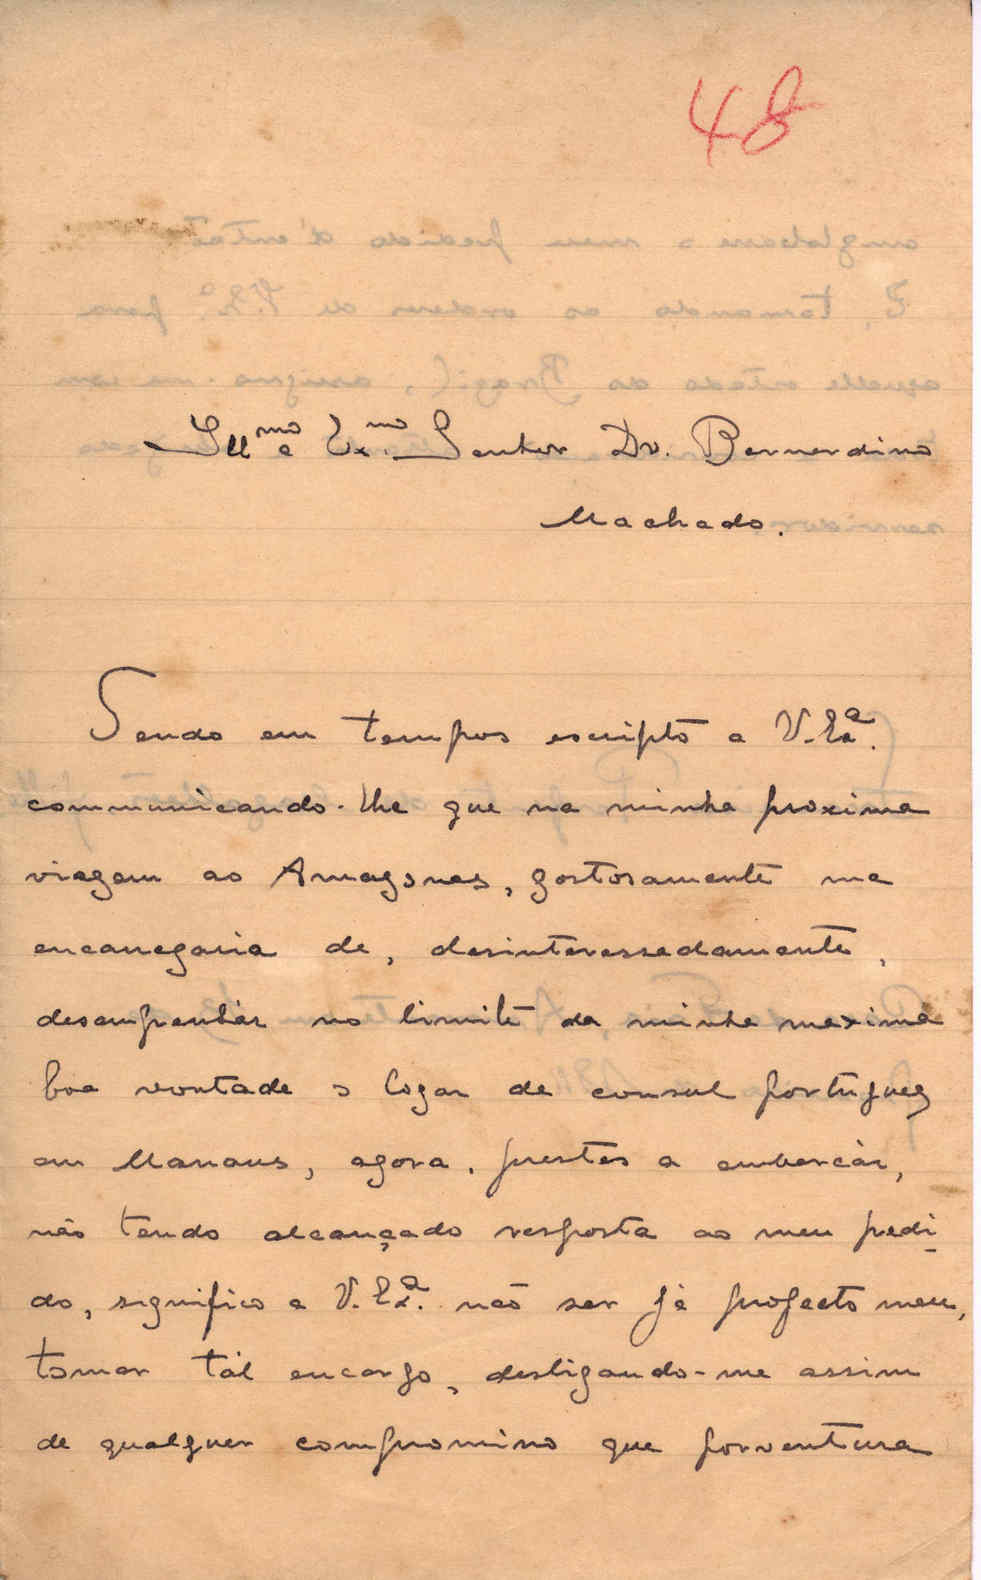 48
Illmo e Exmo. Senhor Dr. Bernardino
Machado.
Sendo em tempos escripto a V. Exa.
communicando-lhe que na minha proxima
viagem ao Amazonas, gostosamente me
encarregaria de, desinteressadamente,
desempenhár no limite da minha maxima
boa vontade o logar de consul portuguez
em Manaus, agora, prestes a embarcár,
não tendo alcançado resposta ao meu pedi-
do, significo a V. Exa. não ser já projecto meu,
tomar tál encargo, desligando-me assim
de qualquer compromisso que porventura